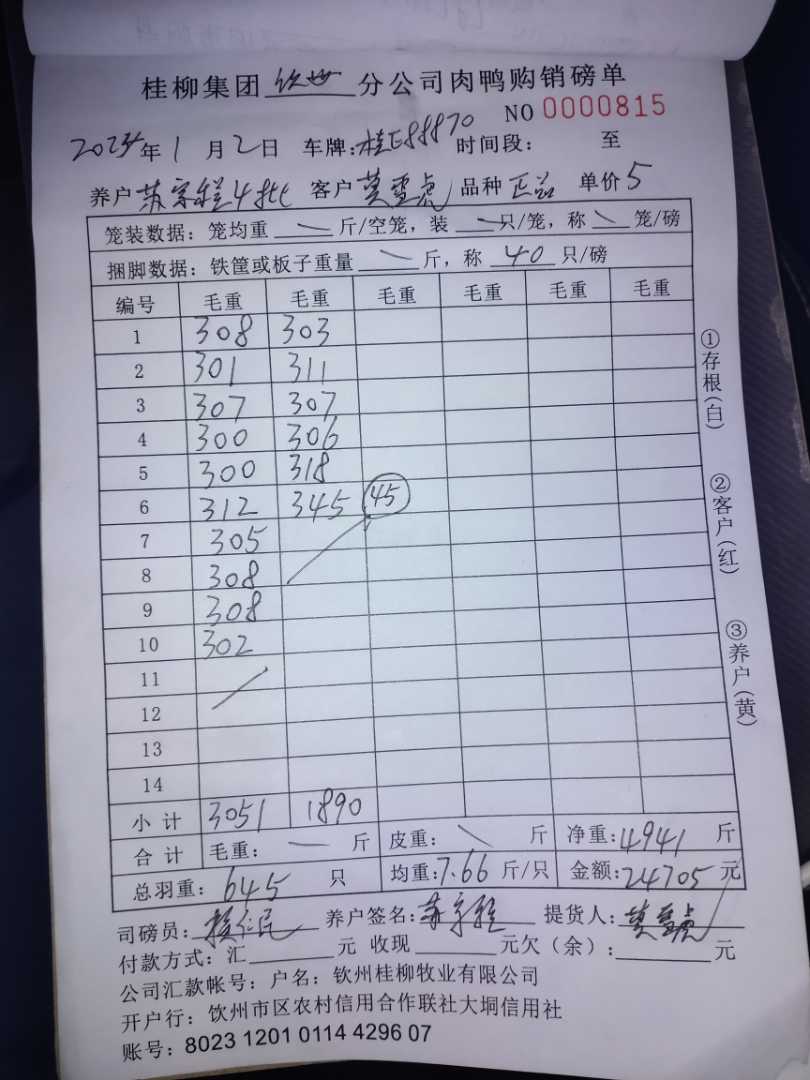 桂柳集团钦州分公司肉鸭购销磅单
NO 0000815
2024年1月2日 车牌:桂E88870 时间段: 至
养户 苏宗程4批 客户 莫雪虎 品种 正品 单价5
笼装数据: 笼均重 \ 斤/空笼, 装 \ 只/笼, 称 \ 笼/磅
捆脚数据: 铁筐或板子重量 \ 斤, 称 40 只/磅
编号 毛重 毛重 毛重 毛重 毛重 毛重
1 308 303
2 301 311
3 307 307
4 300 306
5 300 318
6 312 345 45
7 305
8 308
9 308
10 302
11
12
13
14
小计 3051 1890
合计 毛重: — 斤 皮重: \ 斤 净重:4941 斤
总羽重: 645 只 均重:7.66 斤/只 金额:24705元
司磅员: 养户签名: 苏宗程 提货人: 莫雪虎
付款方式: 汇 元 收现 元欠(余): 元
公司汇款帐号: 户名: 钦州桂柳牧业有限公司
开户行: 钦州市区农村信用合作联社大垌信用社
账号: 8023 1201 0114 4296 07
①存根(白)
②客户(红)
③养户(黄)